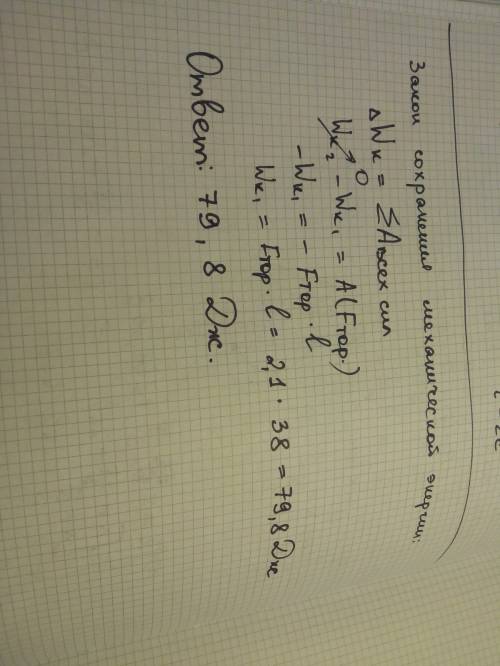 Закон сохранения механической энергии:
ΔWк = ΣAвсех сил
Wк₂ → 0 - Wк₁ = A(Fтор.)
-Wк₁ = - Fтор · l
Wк₁ = Fтор · l = 2,1 · 38 = 79,8 Дж
Ответ: 79,8 Дж.